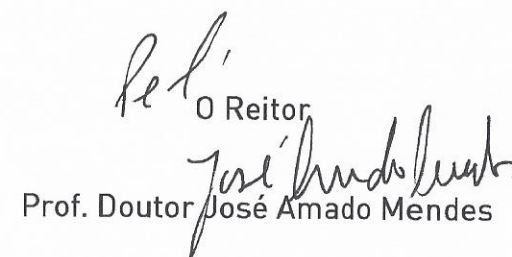 Pel'
O Reitor
José Amado Mendes
Prof. Doutor José Amado Mendes